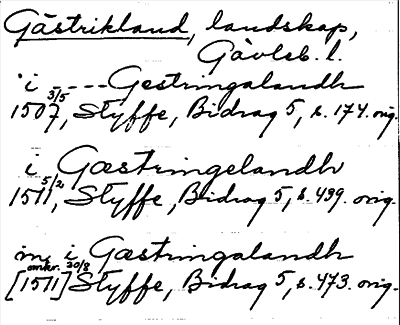 Gästrikland, landskap,
Gävleb. l.
i - - - - Gestringalandh
1507 3/5, Styffe, Bidrag 5, s. 174. orig.
i Gæstringelandh
1511 5/2, Styffe, Bidrag 5, s. 439. orig.
i Gæstringalandh
[1511] omkr. 20/8 Styffe, Bidrag 5, s. 473. orig.